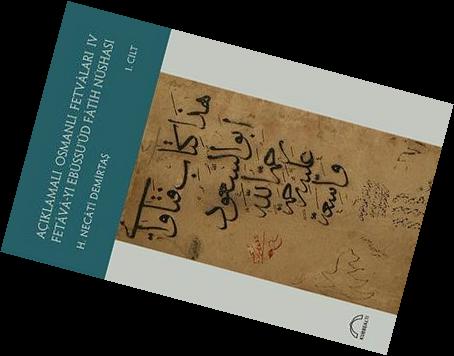 AÇIKLAMALI OSMANLI FETVÂLARI IV
FETÂVÂ-YI EBUSSU'ÛD FÂTİH NÜSHASI
I. CİLT
H. NECATİ DEMİRTAŞ
هذا كتاب فتاوا
ابو السعود
رحمة الله
عليه رحمة
واسعة
KUBBEALTI